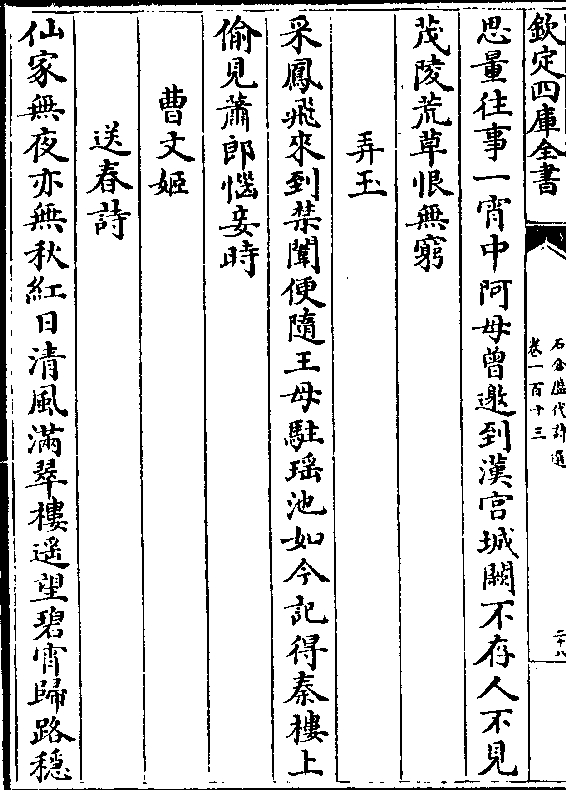 欽定四庫全書
石倉歷代詩選
卷一百十三
二十八
思量往事一宵中阿母曾邀到漢宮城闕不存人不見
茂陵荒草恨無窮
弄玉
采鳳飛來到禁闈便隨王母駐瑶池如今記得秦樓上
偷見蕭郎惱妾時
曹文姬
送春詩
仙家無夜亦無秋紅日清風滿翠樓遥望碧霄歸路穩